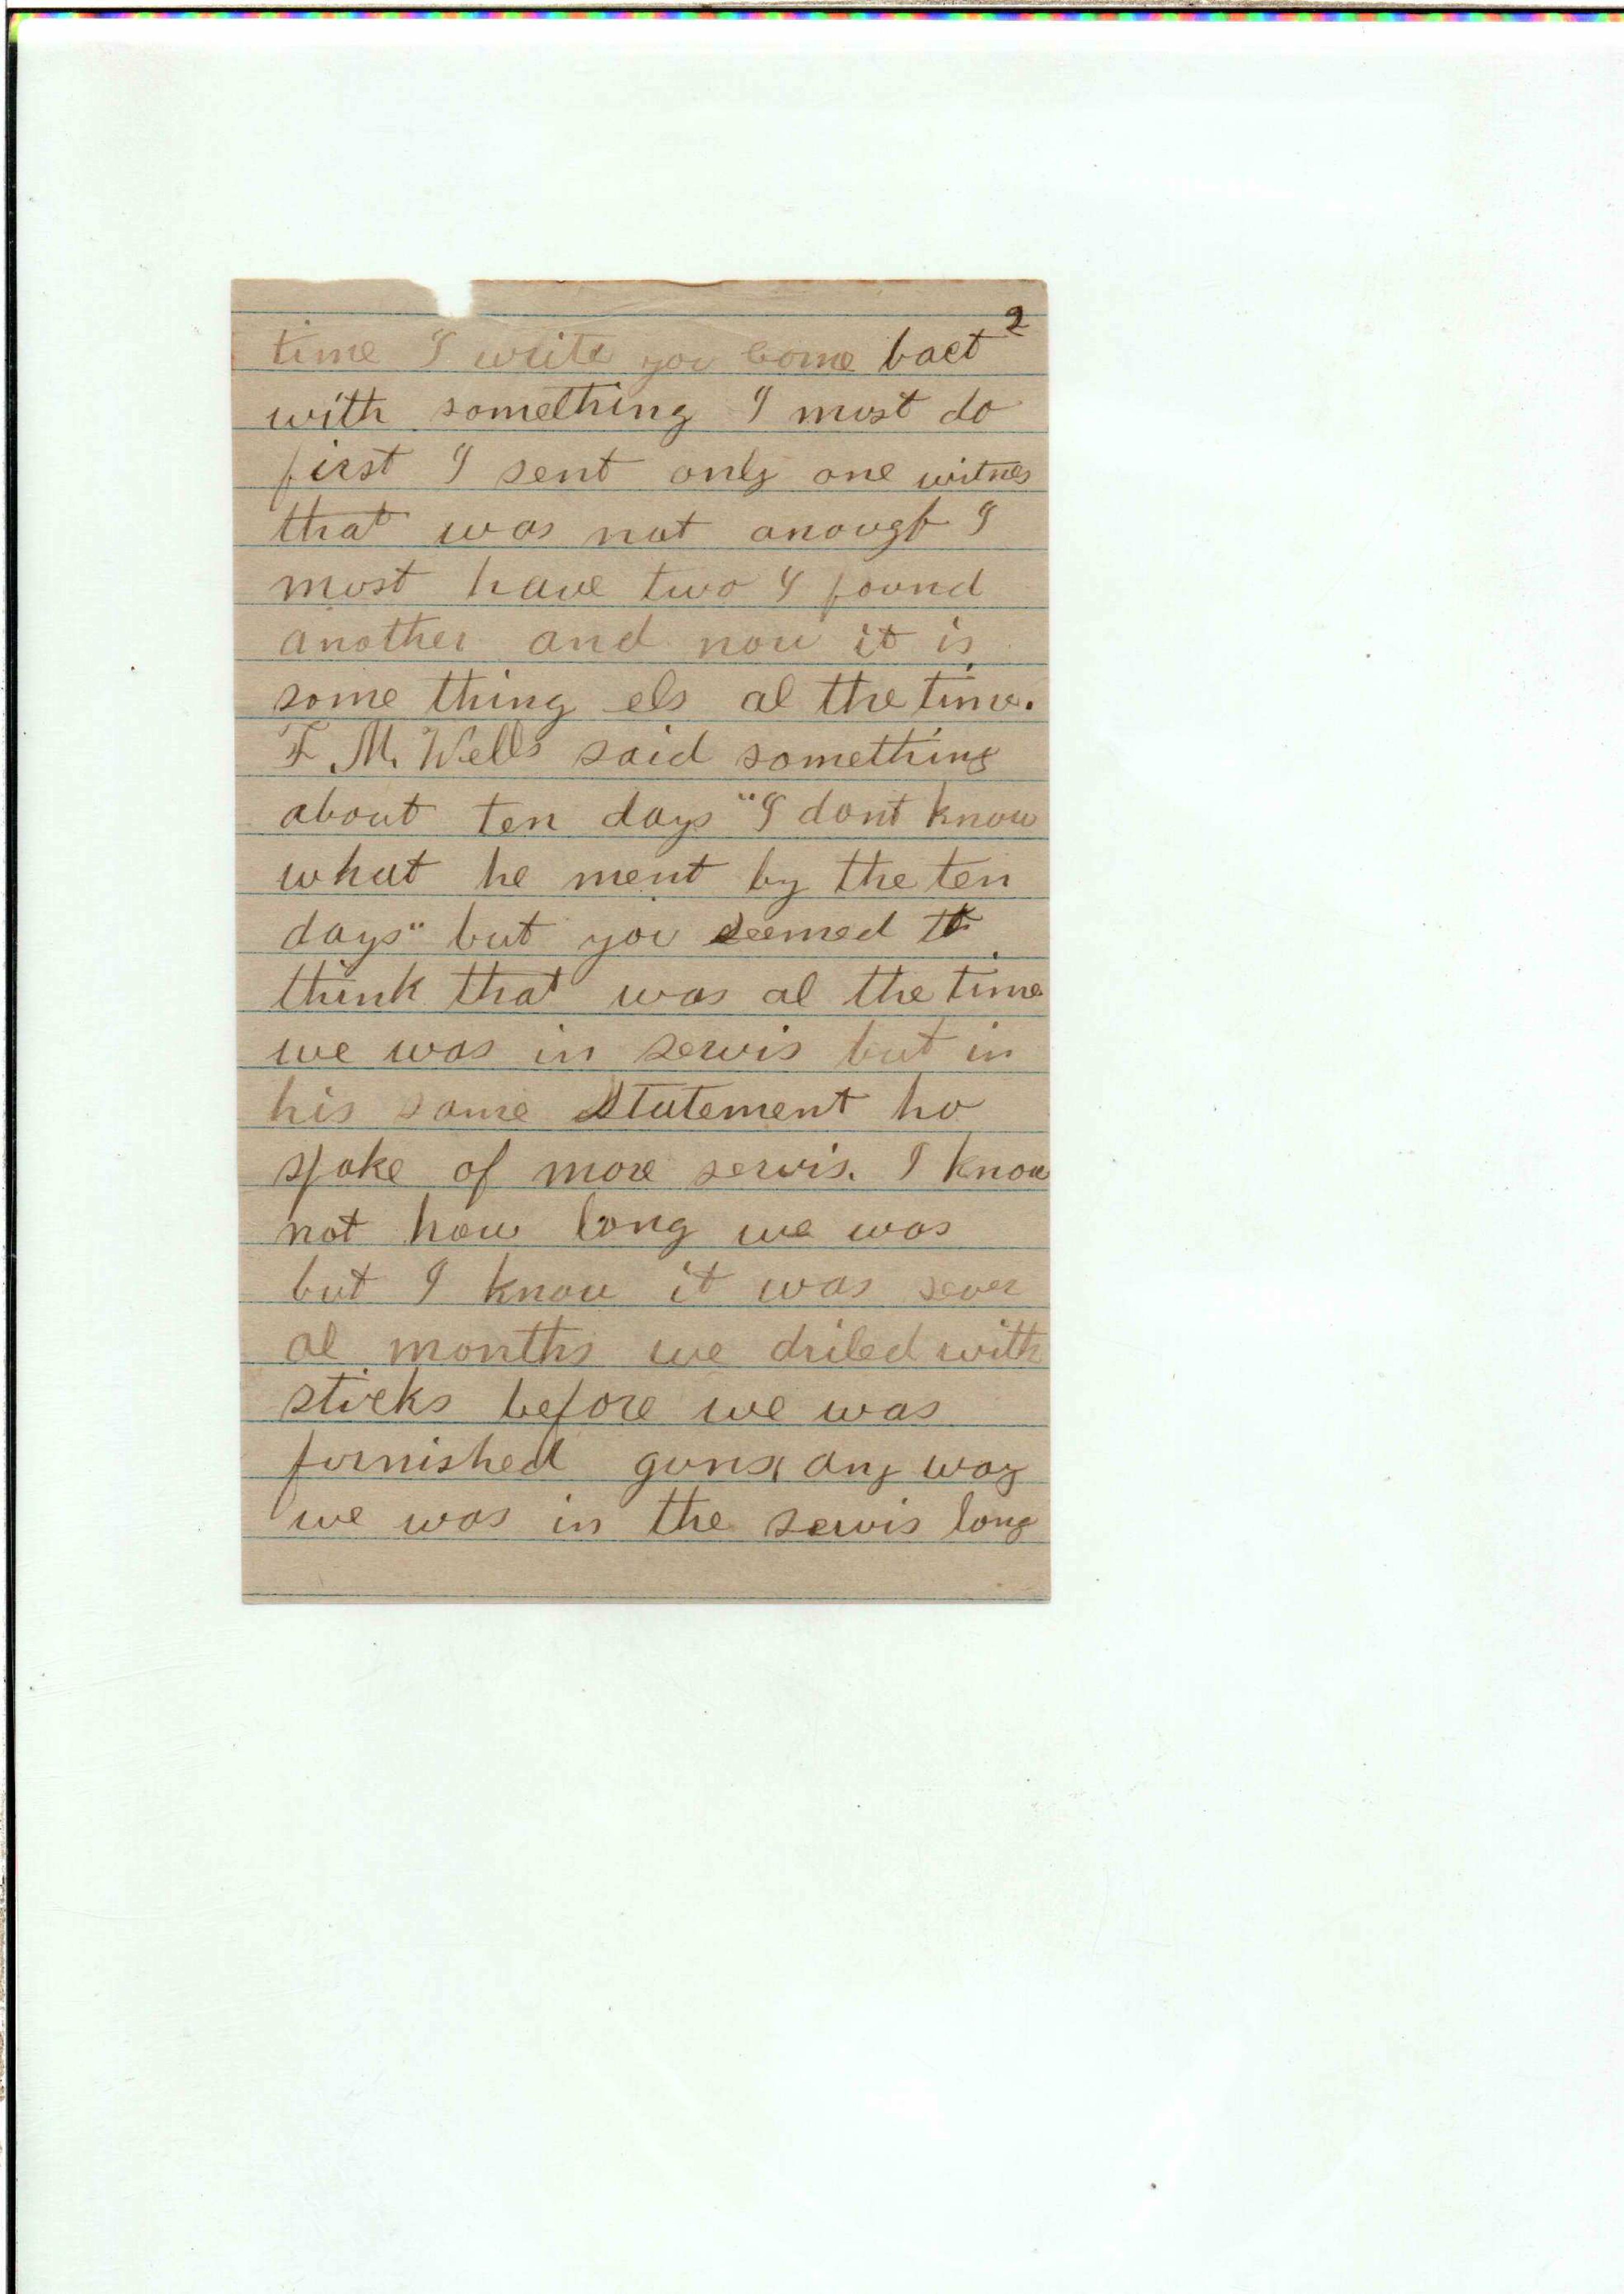 2
time I write you come back
with something I must do
first I sent only one witnes
that was not anough I
must have two I found
another and now it is
some thing els al the time.
F. M. Wells said something
about ten days "I dont know
what he ment by the ten
days" but you seemed to
think that was al the time
we was in servis but in
his same statement he
spoke of more servis. I know
not how long we was
but I know it was sever
al months we driled with
sticks before we was
furnished guns, any way
we was in the servis long